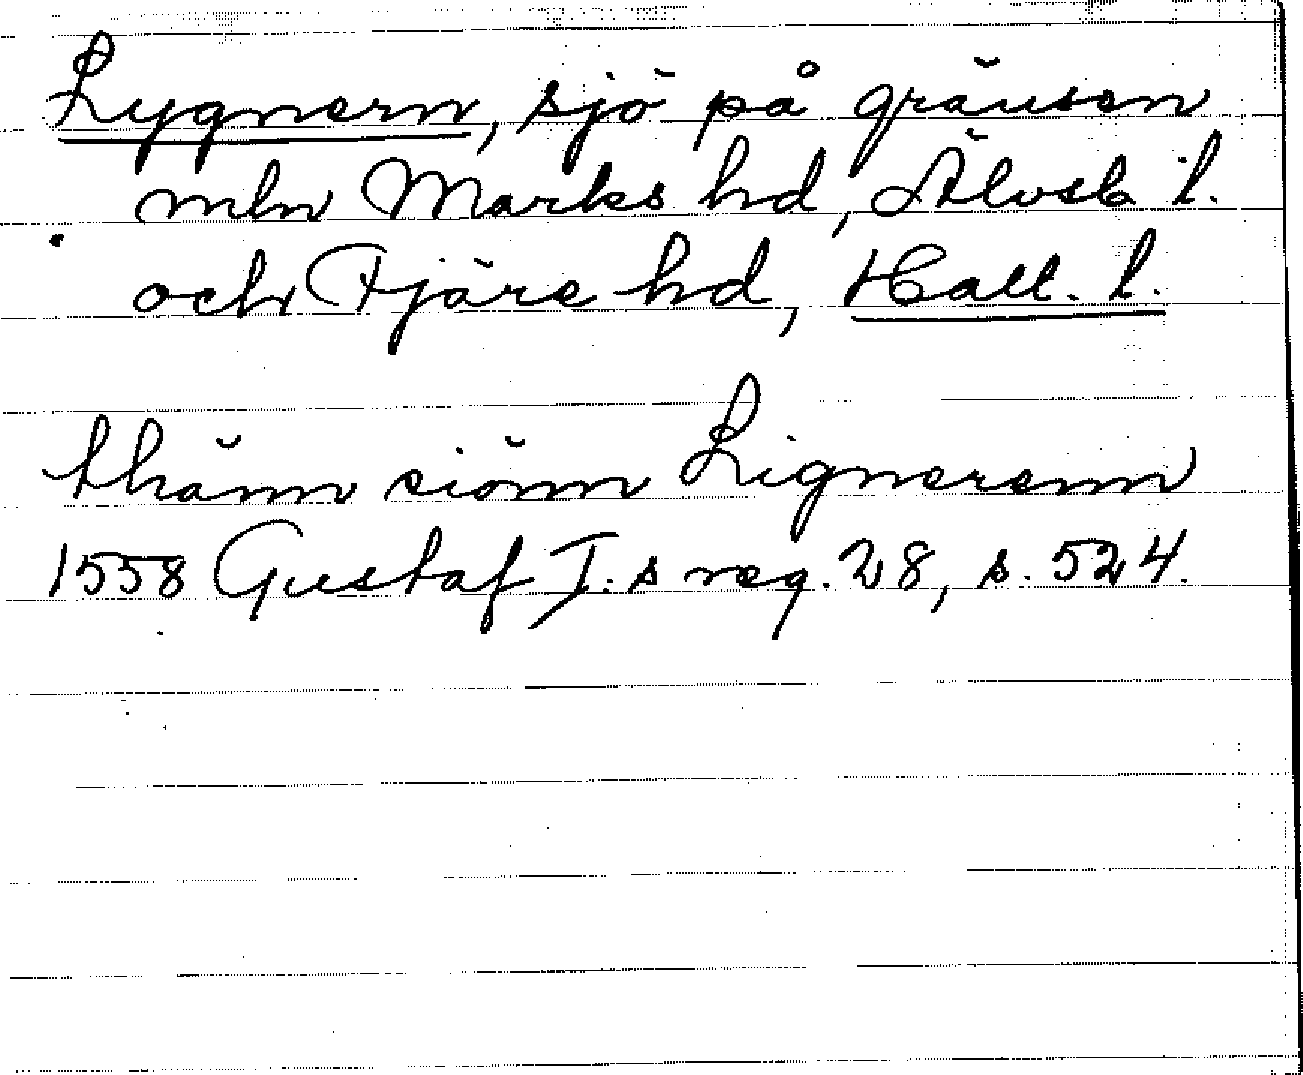 Lygnern, sjö på gränsen
mln Marks hd, Älvsb l.
och Fjäre hd, Hall. l.
thänn siönn Lignerenn
1558 Gustaf I:s reg. 28, s. 524.